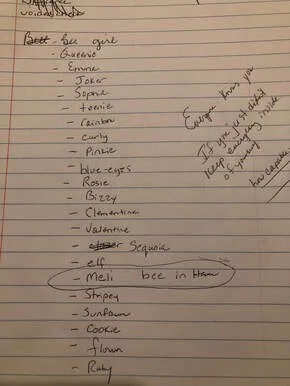 Bee girl
- Queenie
- Emma
- Joker
- Sophie
- teenie
- rainbow
- curly
- Pinkie
- blue-eyes
- Rosie
- Bizzy
- Clementine
- Valentine
- Sequoia
- elf
- Meli bee in
- Stripey
- Sunfawn
- Cookie
- flown
- Ruby
Everyone knows you
If you just didn't
keep everyone inside
of yourself